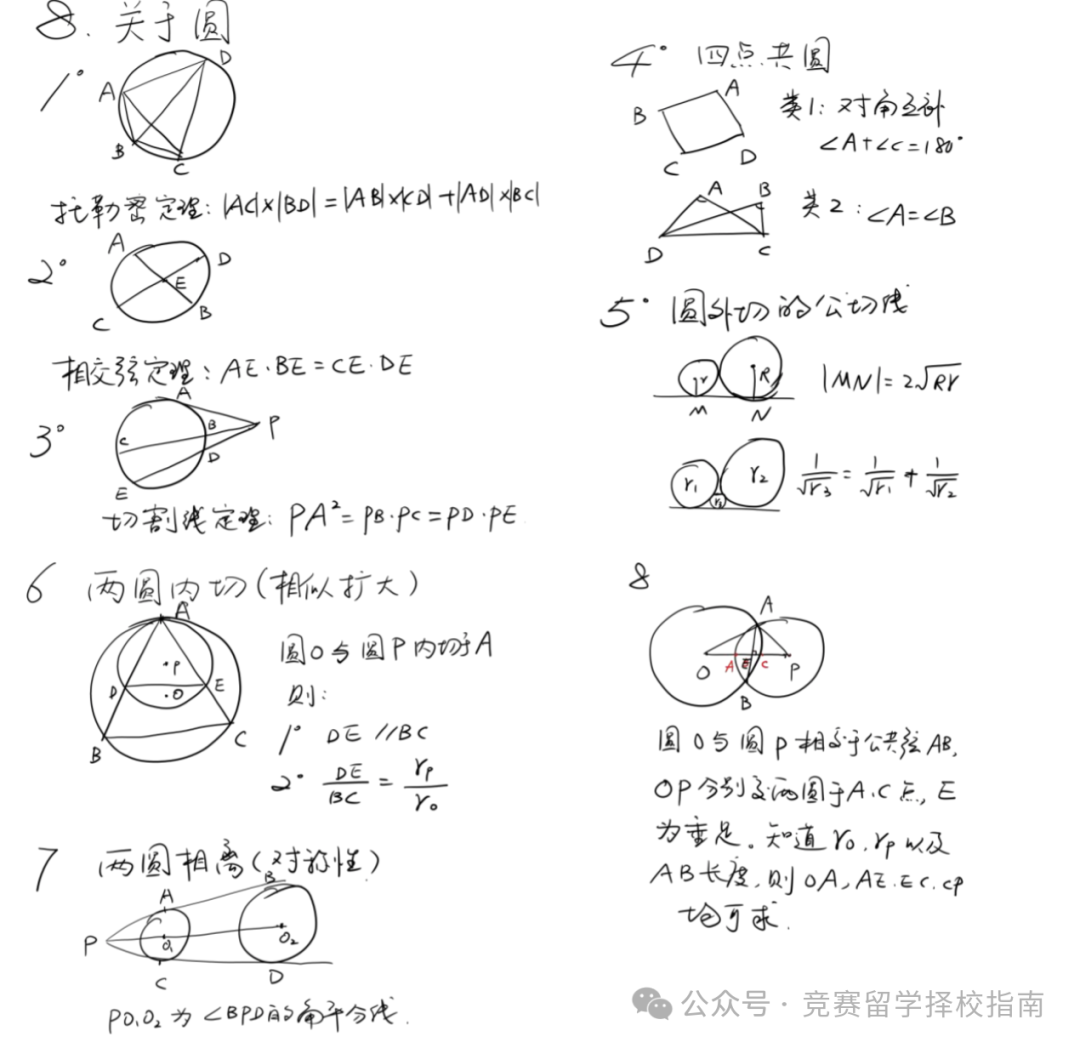 8. 关于圆
1°
A
D
B
C
托勒密定理: |AC|×|BD|=|AB|×|CD|+|AD|×|BC|
2°
A
D
E
C
B
相交弦定理: AE·BE=CE·DE
3°
A
B
P
C
D
E
切割线定理: PA²=PB·PC=PD·PE
4° 四点共圆
A
B
C
D
类1: 对角互补
∠A+∠C=180°
A
B
D
C
类2: ∠A=∠B
5° 圆外切的公切线
r
R
M
N
|MN|=2√Rr
r₁
r₃
r₂
1/√r₃ = 1/√r₁ + 1/√r₂
6 两圆内切(相似扩大)
A
P
D
O
E
B
C
圆O与圆P内切于A
则:
1° DE//BC
2° DE/BC = rₚ/r₀
7 两圆相离(对称性)
A
B
P
O₁
O₂
C
D
PO₁O₂为∠BPD的角平分线.
8
A
O
A
E
C
P
B
圆O与圆P相交于公共弦AB,
OP分别交两圆于A.C点, E
为垂足。知道r₀, rₚ以及
AB长度,则OA, AE. EC. CP
均可求.
公众号·竞赛留学择校指南